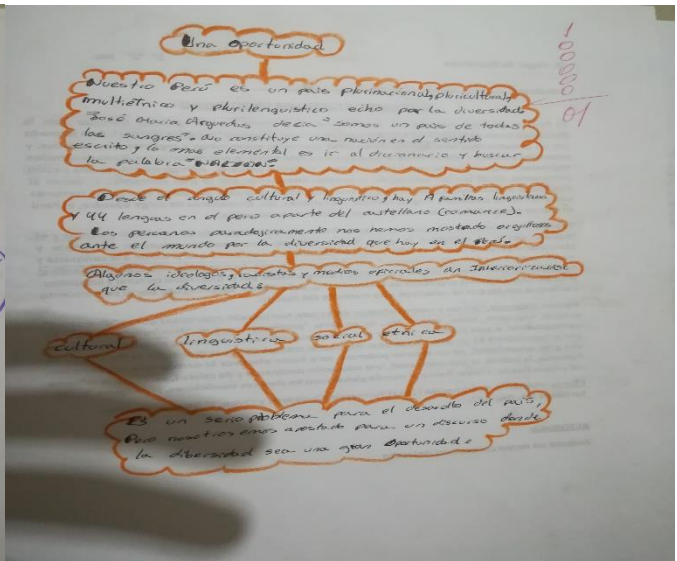 Una oportunidad
1
0
0
0
0
0
01
Nuestro Perú es un país plurinacional, pluricultural,
multietnico y plurilenguistico echo por la diversidad
José María Arguedas decía "somos un país de todas
las sangres". No constituye una nación en el sentido
escrito y lo mas elemental es ir al diccionario y buscar
la palabra "NACION".
Desde el ángulo cultural y linguistico, hay familias linguisticas
y 44 lenguas en el perú aparte del castellano (romance).
Los peruanos paradojicamente nos hemos mostrado orgullosos
ante el mundo por la diversidad que hay en el
Algunos ideologos, y medios
que la diversidad:
cultural
linguistica
social
etnica
Es un serio problema para el desarrollo del país,
Pero nosotros emos apostado para un discurso donde
la dibersidad sea una gran oportunidad.